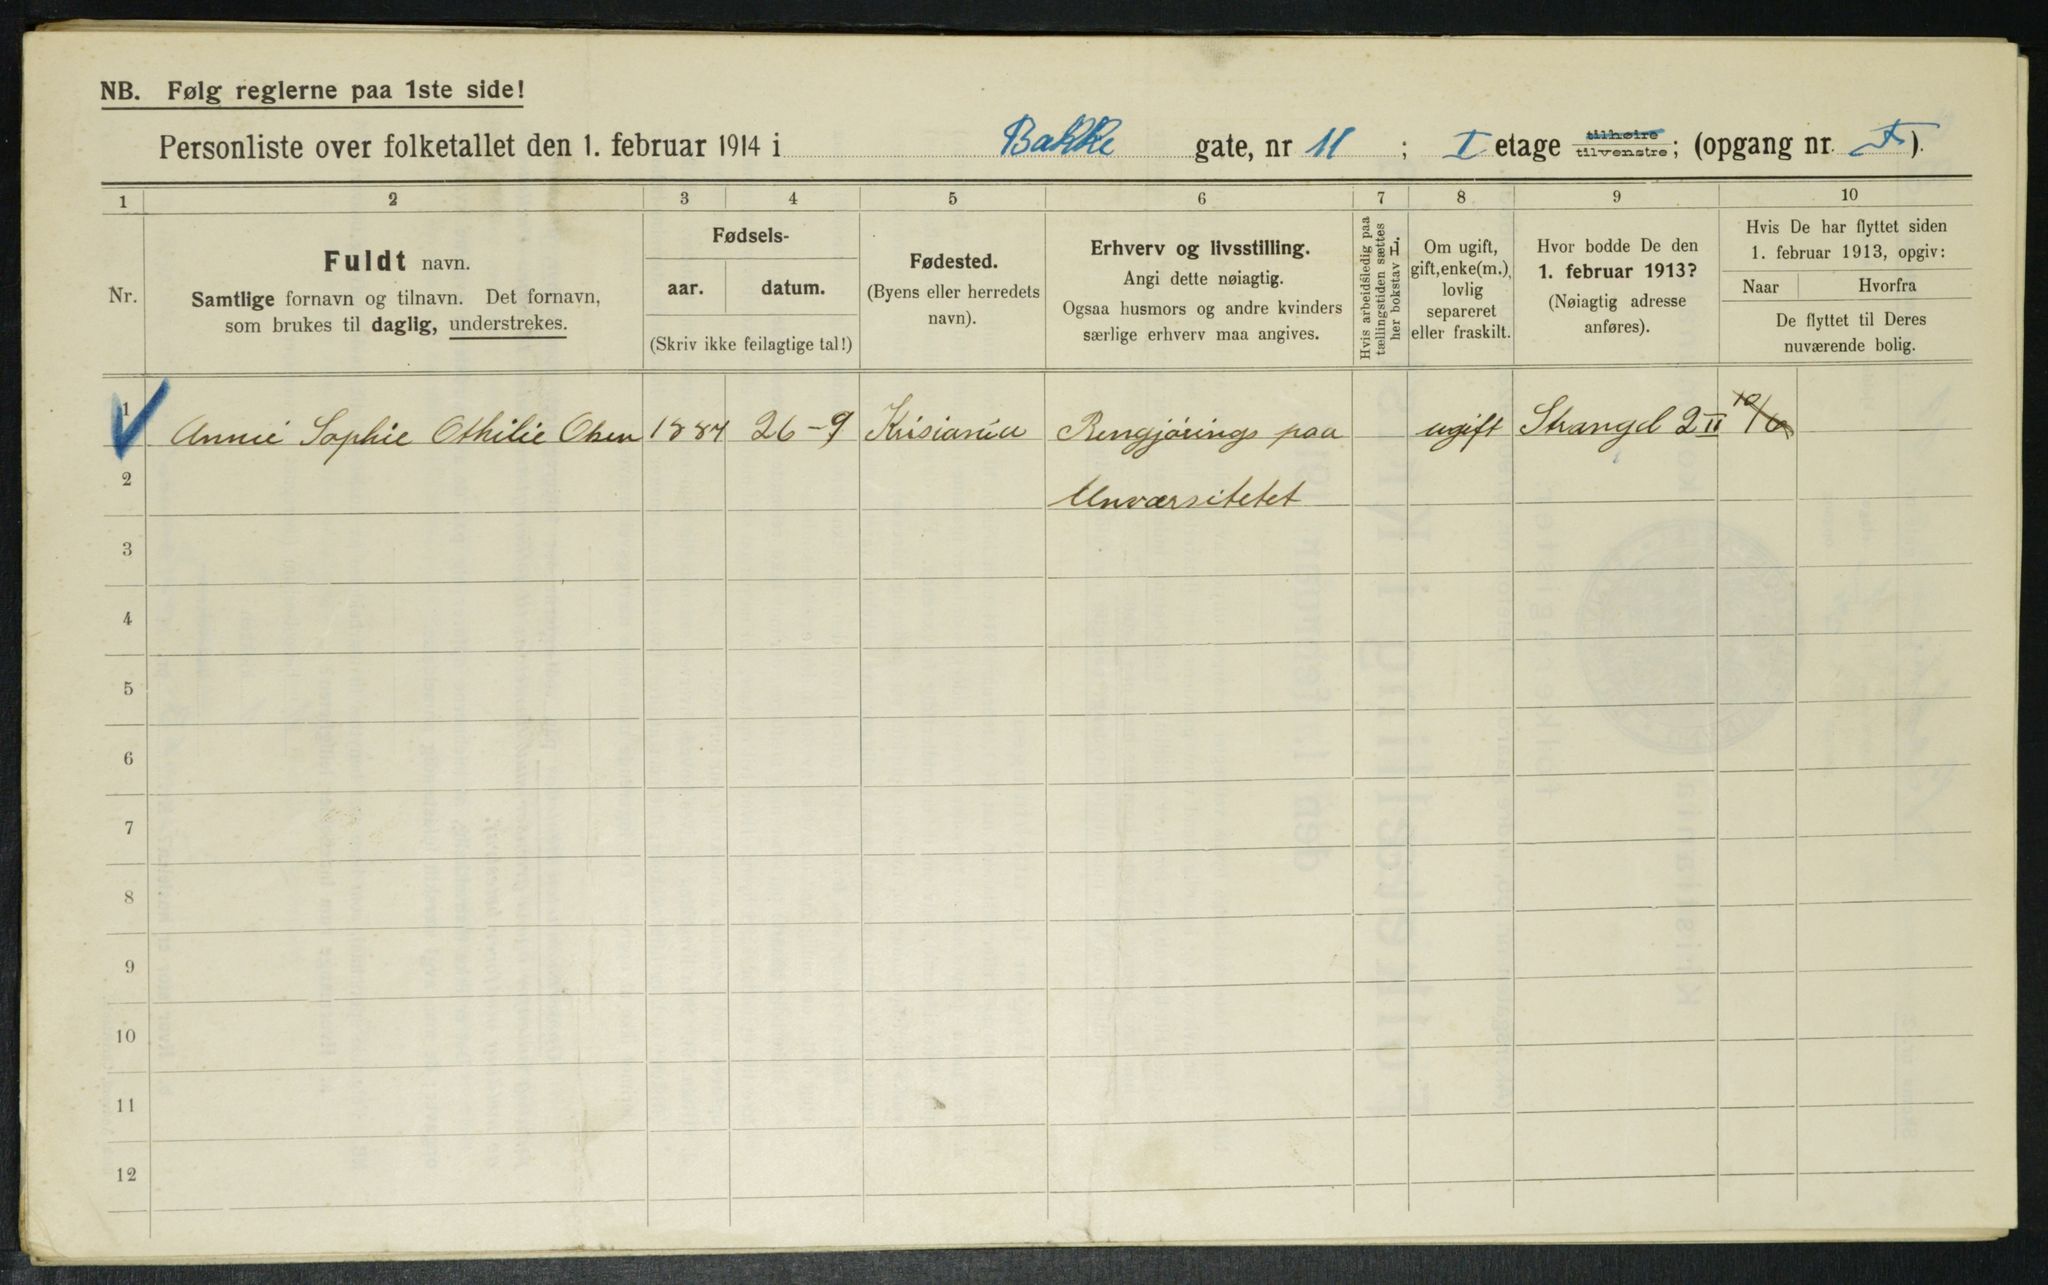 NB. Følg reglerne paa 1ste side!
Personliste over folketallet den 1. februar 1914 i Bakke gate, nr 11 ; I etage tilhøire tilvenstre; (opgang nr. ).
1 2 3 4 5 6 7 8 9 10
Nr.
Fuldt navn.
Samtlige fornavn og tilnavn. Det fornavn,
som brukes til daglig, understrekes.
Fødsels-
aar. datum.
(Skriv ikke feilagtige tal!)
Fødested.
(Byens eller herredets
navn).
Erhverv og livsstilling.
Angi dette nøiagtig.
Ogsaa husmors og andre kvinders
særlige erhverv maa angives.
Hvis arbeidsledig paa
tællingstiden sættes
her bokstav L
Om ugift,
gift, enke(m.),
lovlig
separeret
eller fraskilt.
Hvor bodde De den
1. februar 1913?
(Nøiagtig adresse
anføres).
Hvis De har flyttet siden
1. februar 1913, opgiv:
Naar Hvorfra
De flyttet til Deres
nuværende bolig.
1 Annie Sophie Othilie Olsen 1884 26-9 Krisiania Rengjörings paa ugift Strangd 2 II 10/6
2 Unværsitetet
3
4
5
6
7
8
9
10
11
12